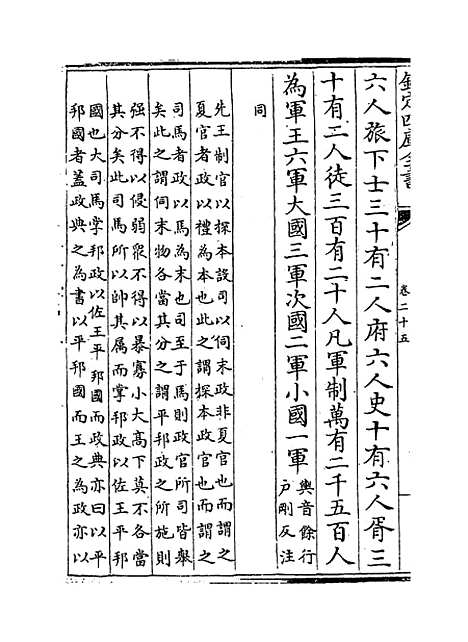 欽定四庫全書
卷二十五
六人旅下士三十有二人府六人史十有六人胥三
十有二人徒三百有二十人凡軍制萬有二千五百人
為軍王六軍大國三軍次國二軍小國一軍
輿音餘行
戶剛反注
同
先王制官以探本設司以伺末政非夏官也而謂之
夏官者政以禮為本也此之謂探本政官也而謂之
司馬者政以馬為末也司至于馬則政官所司皆舉
矣此之謂伺末物各當其分之謂平邦政之所施則
强不得以侵弱衆不得以暴寡小大高下莫不各當
其分矣此司馬所以帥其属而掌邦政以佐王平邦
國也大司馬掌邦政以佐王平邦國而政典亦曰以平
邦國者蓋政典之為書以平邦國而王之為政亦以